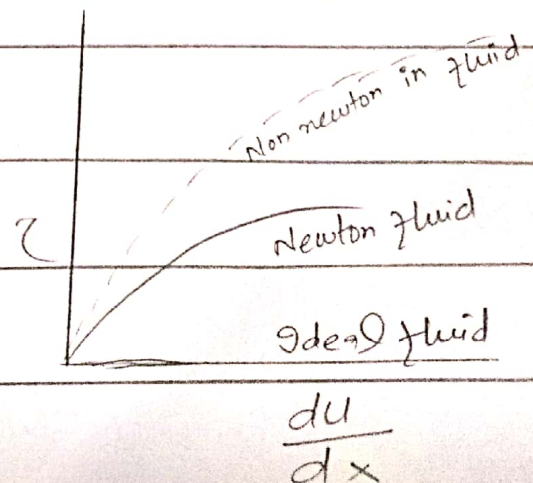 Non newton in fluid
τ
Newton fluid
Ideal fluid
du
dx